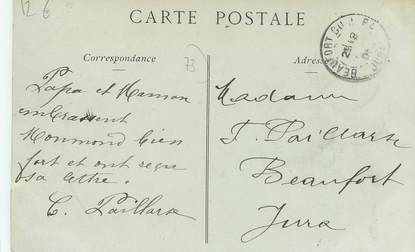 12 6
CARTE POSTALE
Correspondance
73
Adresse
BEAUFORT DU JURA
Papa et Maman
embrassent
Monmond bien
fort et ont reçu
sa lettre.
C. Paillard
Madame
F. Paillard
Beaufort
Jura